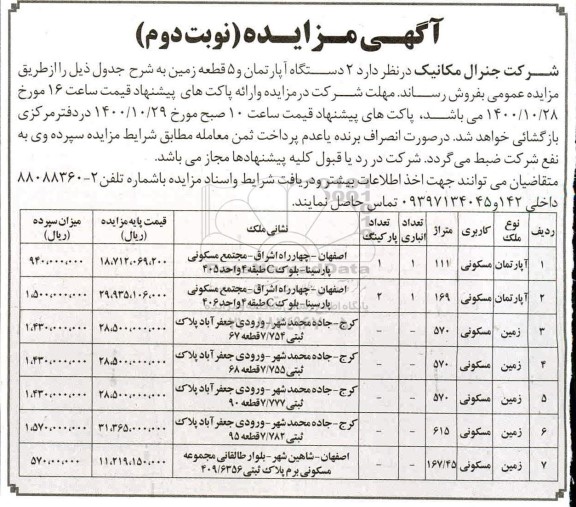 آگهی مزایده (نوبت دوم)
شرکت جنرال مکانیک درنظر دارد ۲ دستگاه آپارتمان و ۵ قطعه زمین به شرح جدول ذیل را از طریق
مزایده عمومی بفروش رساند. مهلت شرکت در مزایده و ارائه پاکت های پیشنهاد قیمت ساعت ۱۶ مورخ
۱۴۰۰/۱۰/۲۸ می باشد، پاکت های پیشنهاد قیمت ساعت ۱۰ صبح مورخ ۱۴۰۰/۱۰/۲۹ در دفتر مرکزی
بازگشائی خواهد شد. درصورت انصراف برنده یا عدم پرداخت ثمن معامله مطابق شرایط مزایده سپرده وی به
نفع شرکت ضبط می گردد. شرکت در رد یا قبول کلیه پیشنهادها مجاز می باشد.
متقاضیان می توانند جهت اخذ اطلاعات بیشتر و دریافت شرایط و اسناد مزایده با شماره تلفن ۲-۸۸۰۸۸۳۶۰
داخلی ۱۴۲ و ۰۹۳۹۷۱۳۴۰۴۵ تماس حاصل نمایند.
ردیف نوع ملک کاربری متراژ تعداد انباری تعداد پارکینگ نشانی ملک قیمت پایه مزایده (ریال) میزان سپرده (ریال)
۱ آپارتمان مسکونی ۱۱۱ ۱ ۱ اصفهان-چهارراه اشراق-مجتمع مسکونی پارسینا-بلوک C طبقه ۴ واحد ۴۰۵ ۱۸,۷۱۲,۰۶۹,۲۰۰ ۹۴۰,۰۰۰,۰۰۰
۲ آپارتمان مسکونی ۱۶۹ ۱ ۲ اصفهان-چهارراه اشراق-مجتمع مسکونی پارسینا-بلوک C طبقه ۴ واحد ۴۰۶ ۲۹,۹۳۵,۱۰۶,۰۰۰ ۱,۵۰۰,۰۰۰,۰۰۰
۳ زمین مسکونی ۵۷۰ - - کرج-جاده محمدشهر-ورودی جعفرآباد پلاک ثبتی ۷/۷۵۴ قطعه ۶۷ ۲۸,۵۰۰,۰۰۰,۰۰۰ ۱,۴۳۰,۰۰۰,۰۰۰
۴ زمین مسکونی ۵۷۰ - - کرج-جاده محمدشهر-ورودی جعفرآباد پلاک ثبتی ۷/۷۵۵ قطعه ۶۸ ۲۸,۵۰۰,۰۰۰,۰۰۰ ۱,۴۳۰,۰۰۰,۰۰۰
۵ زمین مسکونی ۵۷۰ - - کرج-جاده محمدشهر-ورودی جعفرآباد پلاک ثبتی ۷/۷۷۷ قطعه ۹۰ ۲۸,۵۰۰,۰۰۰,۰۰۰ ۱,۴۳۰,۰۰۰,۰۰۰
۶ زمین مسکونی ۶۱۵ - - کرج-جاده محمدشهر-ورودی جعفرآباد پلاک ثبتی ۷/۷۸۲ قطعه ۹۵ ۳۱,۳۶۵,۰۰۰,۰۰۰ ۱,۵۷۰,۰۰۰,۰۰۰
۷ زمین مسکونی ۱۶۷/۴۵ - - اصفهان-شاهین شهر-بلوار طالقانی مجموعه مسکونی برم پلاک ثبتی ۴۰۹/۶۳۵۶ ۱۱,۲۱۹,۱۵۰,۰۰۰ ۵۷۰,۰۰۰,۰۰۰